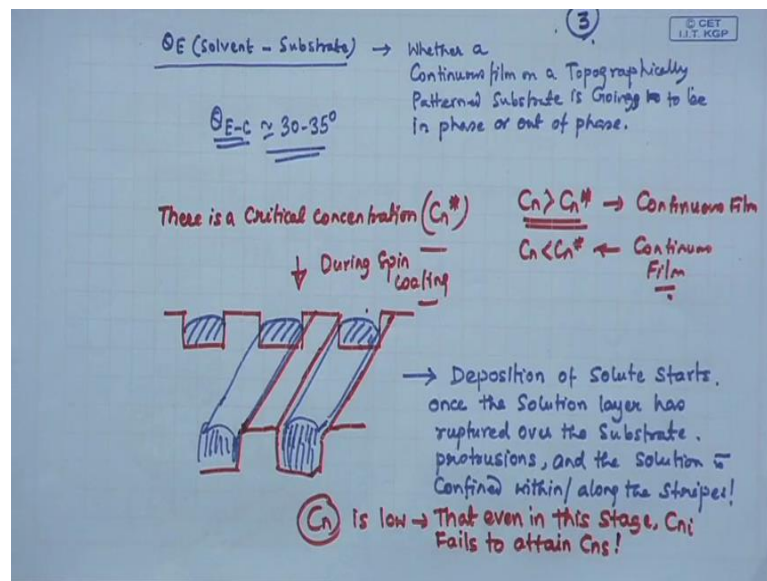 3
© CET
I.I.T. KGP
θE (Solvent - Substrate) → Whether a
Continuous film on a Topographically
Patterned Substrate is Going to to be
in phase or out of phase.
θE-C ≈ 30-35°
There is a Critical Concentration (Cn*)
Cn > Cn* → Continuous Film
Cn < Cn* ← Continuous
Film
↓ During Spin
coating
→ Deposition of Solute Starts.
once the Solution layer has
ruptured over the Substrate.
protrusions, and the Solution is
Confined within/along the Stripes!
Cn is low → That even in this Stage, Cni
Fails to attain Cns!